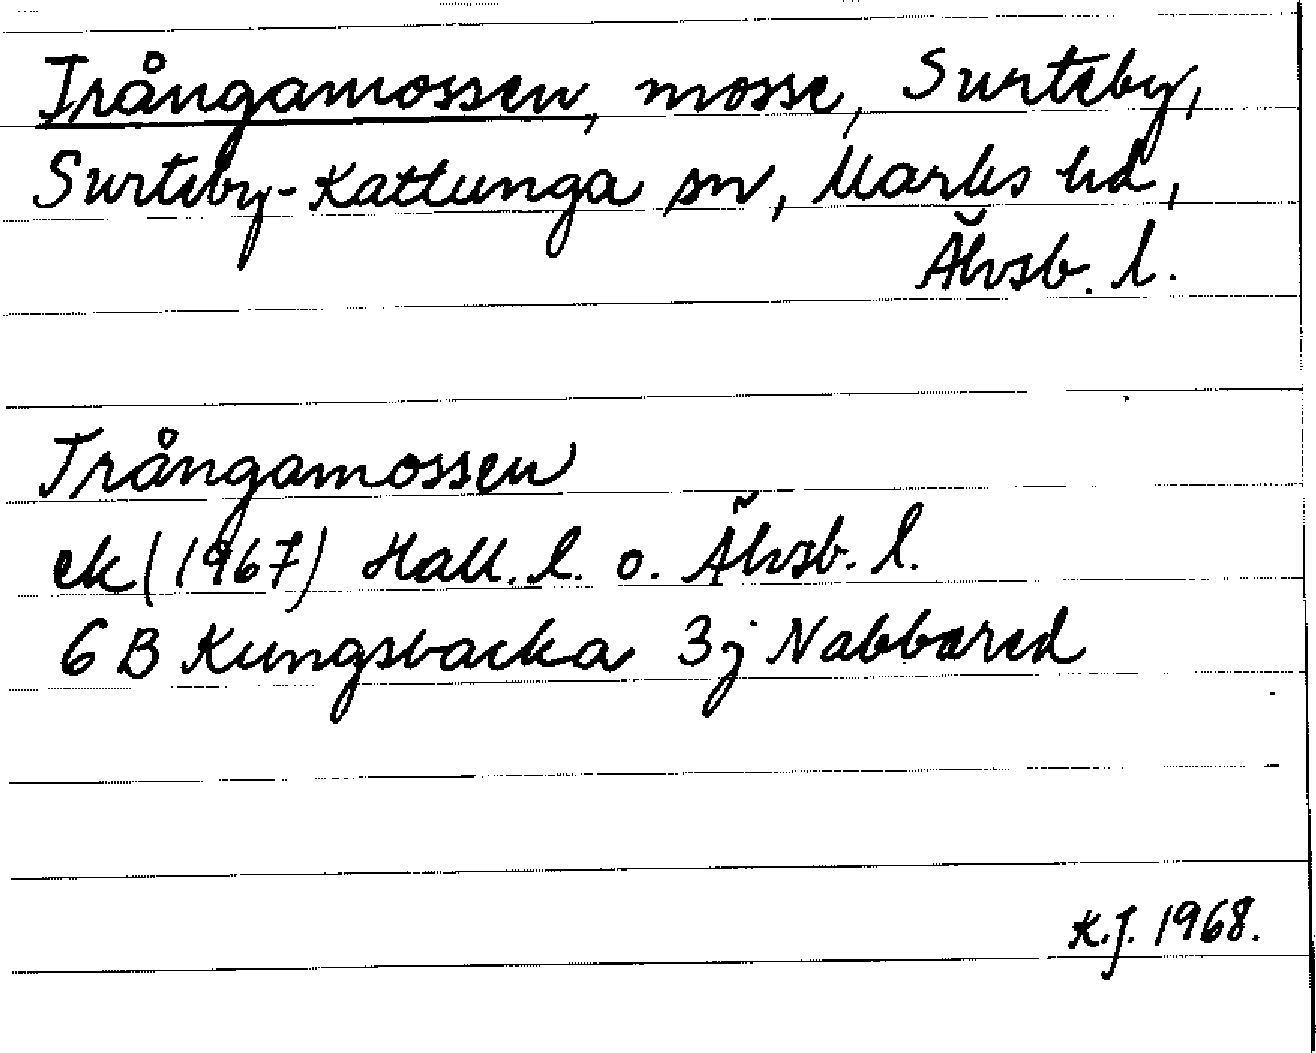 Trångamossen, mosse, Surteby,
Surteby-Kattunga sn, Marks hd,
Älvsb. l.
Trångamossen
ek (1967) Hall. l. o. Älvsb. l.
6 B Kungsbacka 3j Nabbared
K.J. 1968.